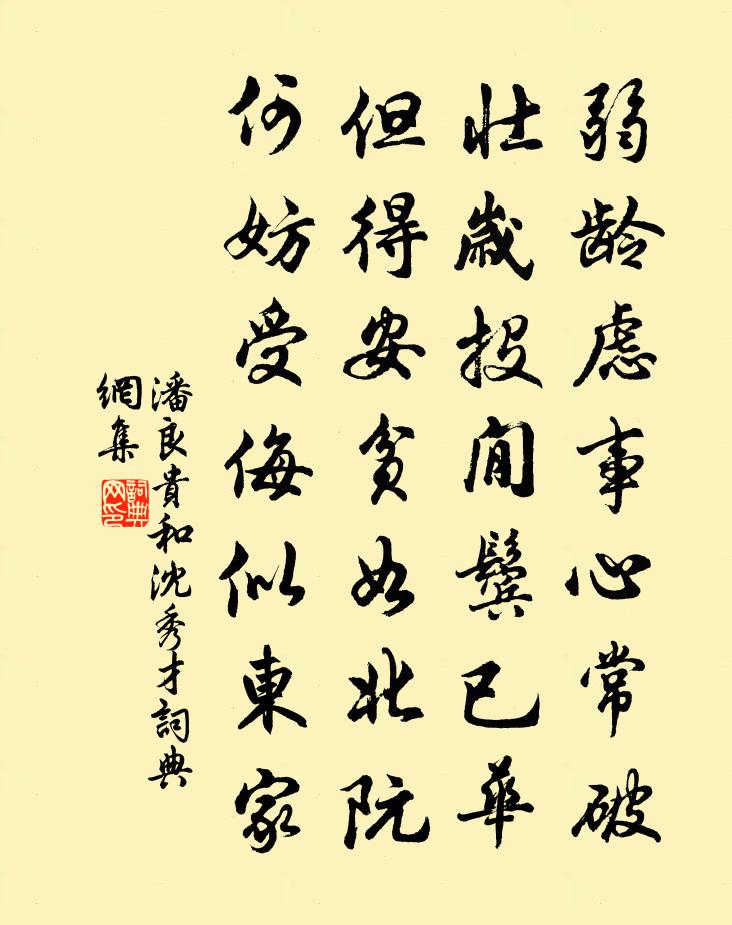 弱龄虑事心常破
壮歲投閒鬓已華
但得安貧如北阮
何妨受侮似東家
潘良貴和沈秀才詞典
網集
詞典
网印